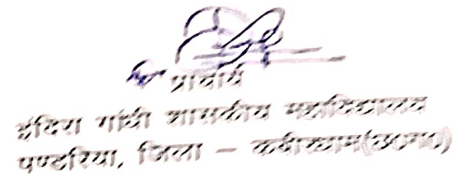 प्राचार्य
इंदिरा गांधी शासकीय महाविद्यालय
पण्डरिया, जिला – कबीरधाम(छ०ग०)